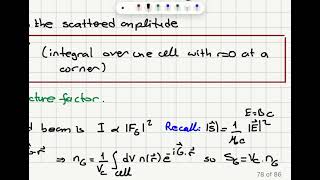 the scattered amplitude
(integral over one cell with r=0 at a
corner)
cture factor.
E=Bc
d beam is I ∝ |F_G|² Recall: |S⃗| = 1/(μ₀c) |E⃗|²
G⃗·r⃗ ⇒ n_G = 1/V_c ∫_cell dV n(r⃗) e^{-iG⃗·r⃗} so S_G = V_c n_G
78 of 86